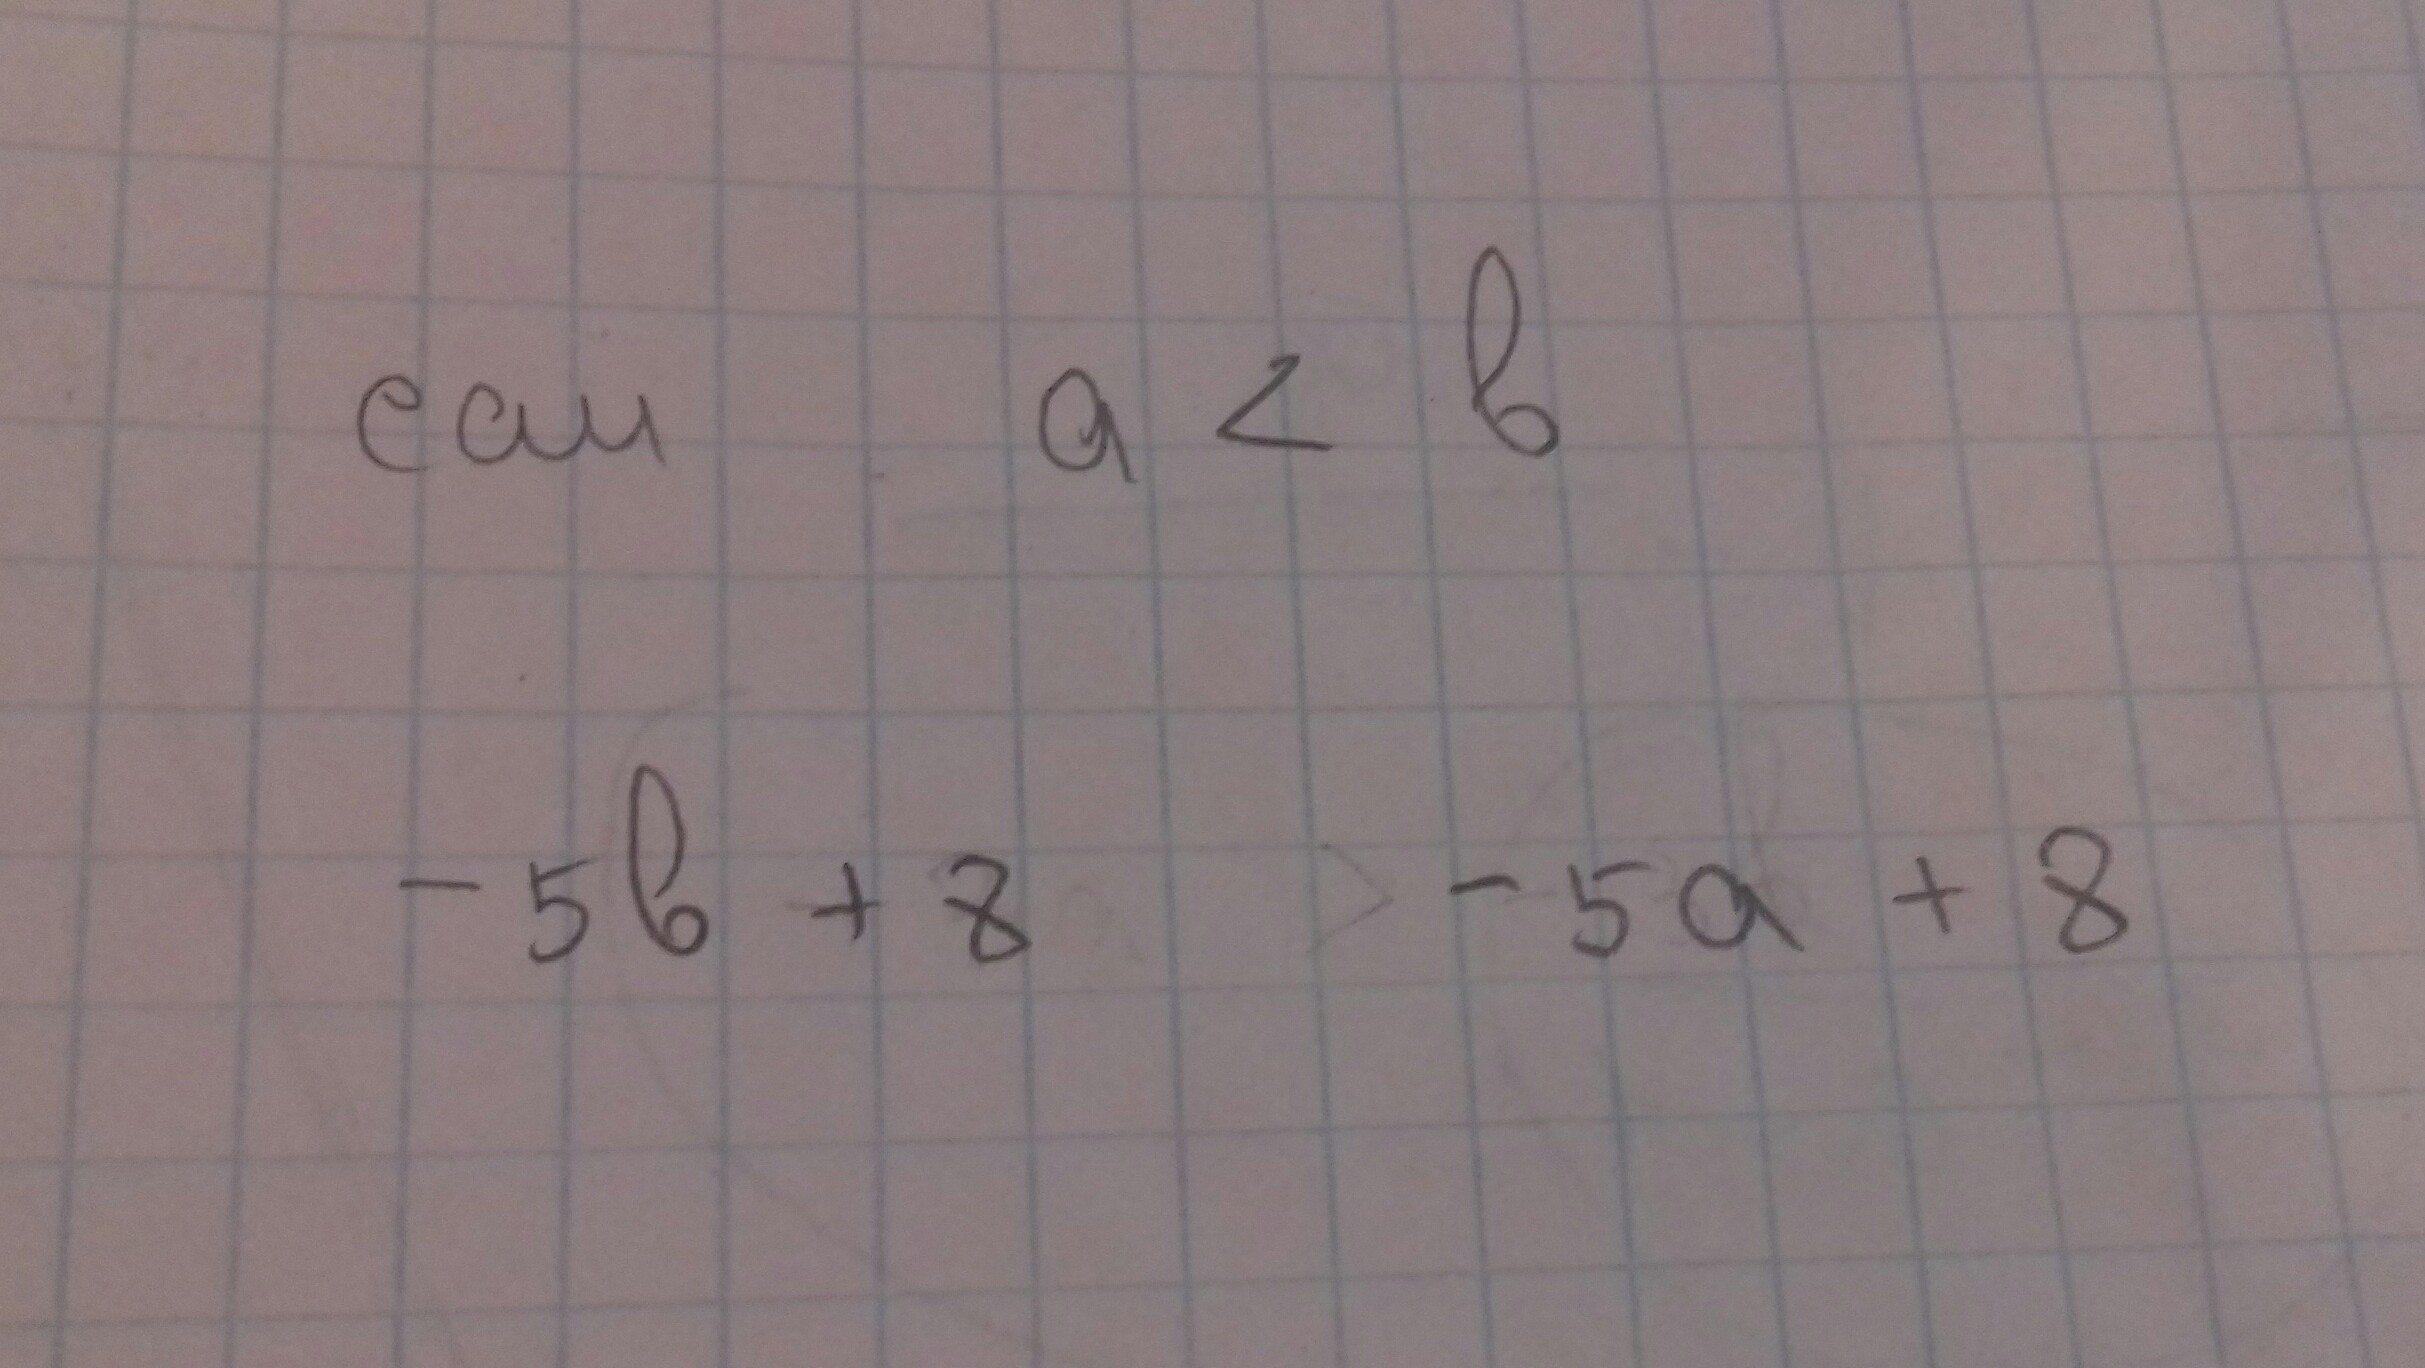 если a < b
-5b + 8 > -5a + 8